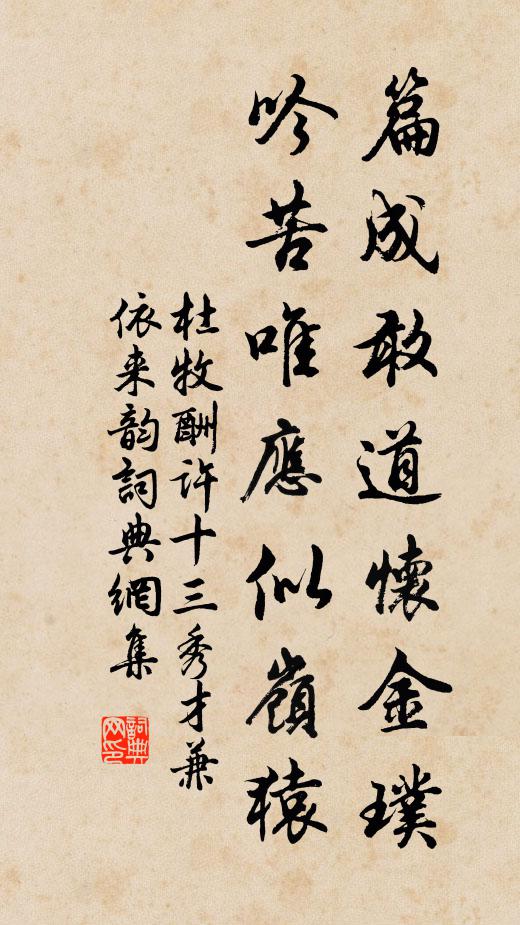 篇成敢道懷金璞
吟苦唯應似嶺猿
杜牧酬許十三秀才兼
依来韵詞典網集
詞典網印